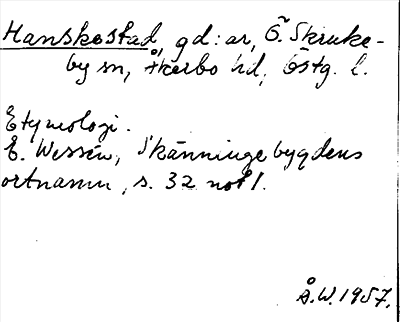 Hanskestad, gd:ar, Ö. Skruke-
by sn, Åkerbo hd, Östg. l.
Etymologi.
E. Wessén, Skänningebygdens
ortnamn, s. 32 not 1.
Å.W. 1957.